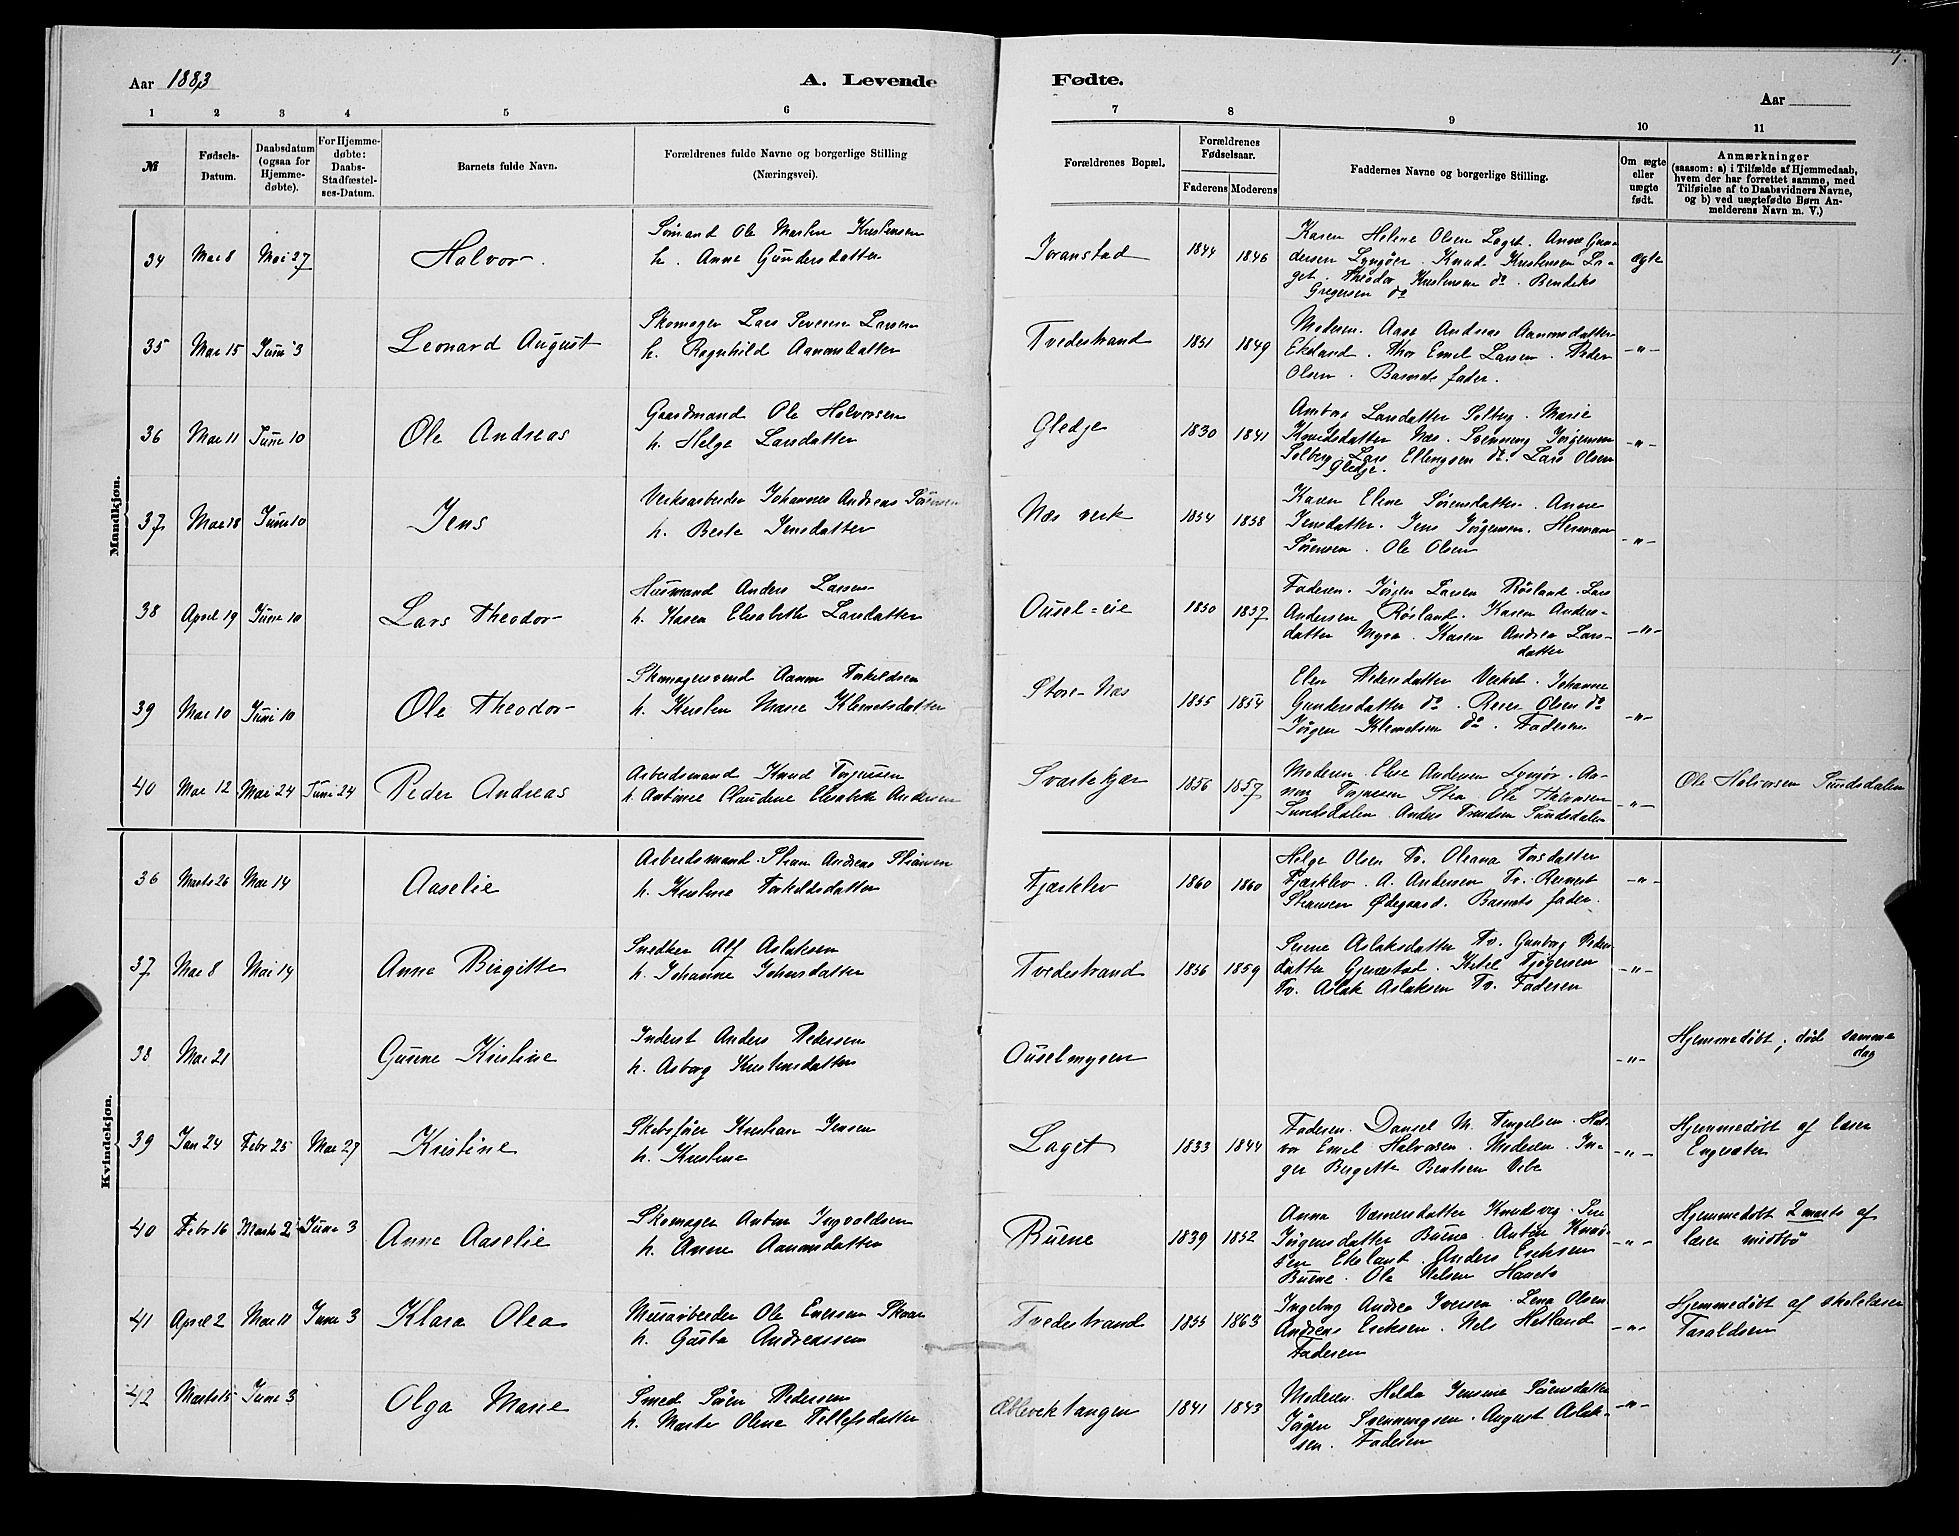 7.
Aar 1883
A. Levende Fødte.
Aar
1 2 3 4 5 6 7 8 9 10 11
№
Fødsels-Datum.
Daabsdatum (ogsaa for Hjemmedøbte).
For Hjemmedøbte: Daabs-Stadfæstelses-Datum.
Barnets fulde Navn.
Forældrenes fulde Navne og borgerlige Stilling (Næringsvei).
Forældrenes Bopæl.
Forældrenes Fødselsaar.
Faderens Moderens
Faddernes Navne og borgerlige Stilling.
Om ægte eller uægte født.
Anmærkninger
(saasom: a) i Tilfælde af Hjemmedaab,
hvem der har forrettet samme, med
Tilføielse af to Daabsvidners Navne,
og b) ved uægtefødte Børn Anmelderens Navn m. V.)
Mandkjøn.
34 Mai 8 Mai 27 Halvor
Sømand Ole Martin Kristensen
h. Anne Gundersdatter
1844 1846
Karen Helene Olsen Laget. Anne Gun-
dersen Lyngør. Knud Kristensen La-
get. Theodor Kristensen do. Bendiks
Gregersen do
ægte
35 Mai 15 Juni 3 Leonard August
Skomager Lars Severin Larsen
h. Ragnhild Aanonsdatter
Tvedestrand 1851 1849
Moderen. Aase Andrea Aanonsdatter
Ekeland. Thor Emil Larsen. Peder
Olsen. Barnets fader.
-"-
36 Mai 11 Juni 10 Ole Andreas
Gaardmand Ole Halvorsen
h. Helge Larsdatter
Gledje 1830 1841
Amborg Larsdatter Solberg. Marie
Knudsdatter Næs. Svenning Jørgensen
Solberg. Lars Ellingsen do. Lars Olsen
Gledje.
-"-
37 Mai 18 Juni 10 Jens
Verksarbeider Johannes Andreas Sørensen
h. Berte Jensdatter
Næs verk 1854 1858
Karen Eline Sørensdatter. Anne
Jensdatter. Jens Jørgensen. Herman
Sørensen. Ole Olsen
-"-
38 April 19 Juni 10 Lars Theodor
Husmand Anders Larsen
h. Karen Elisabeth Larsdatter
Ousel=eie 1850 1857
Faderen. Jørgen Larsen Røsland. Lars
Andersen Røsland. Karen Anders-
datter Myra. Karen Andrea Lars-
datter
-"-
39 Mai 10 Juni 10 Ole Theodor
Skomagersvend Aanon Torkildsen
h. Kirsten Marie Klemetsdatter
Store-Næs 1855 1854
Elen Pedersdatter Verket. Johanne
Gundersdatter do. Reier Olsen do
Jørgen Klemetsen do. Faderen
-"-
40 Mai 12 Mai 24 Juni 24 Peder Andreas
Arbeidsmand Knud Terjesen
h. Claudine Elisabeth Andersen
Svartekjær 1856 1857
Moderen. Else Andersen Lyngør. Aa-
non Ole Halvorsen
Sundsdalen. Anders Sundsdalen
-"-
Ole Halvorsen Sundsdalen
Kvindekjøn.
36 Marts 26 Mai 14 Aaselie
Arbeidsmand Andreas
h. Kirstine Torkildsdatter
Fjærklev 1860 1860
Helge Olsen Tv. Oleana Torsdatter
Fjærklev. A. Andersen Tv. Reinert
Ødegaard. Barnets fader.
-"-
37 Mai 8 Mai 14 Anne Birgitte
Snedker Alf Aslaksen
h. Johanne Johnsdatter
Tvedestrand 1856 1859
Serine Aslaksdatter Tv. Gunborg Peders
datter Gjerestad. Ketil Tjøgersen
Tv. Aslak Aslaksen Tv. Faderen
-"-
38 Mai 21 Gunne Kristine
Inderst Anders Pedersen
h. Asborg Kristensdatter
Ouselmyren
-"-
Hjemmedøbt; død samme
dag
39 Jan 24 Febr 25 Mai 27 Kristine
Skibsfører Kristian Jensen
h. Kristine
Laget 1833 1844
Faderen. Daniel M. Tengelsen. Hal-
vor Emil Halvorsen. Moderen. In-
ger Birgitte Bentsen Vibe
-"-
Hjemmedøbt af lærer
Engesæter
40 Febr 16 Marts 2 Juni 3 Anne Aaselie
Skomager Anton Ingvoldsen
h. Anne Aanonsdatter
Buene 1839 1852
Anna Værnersdatter
Jørgensdatter Buene. Anton
Ekeland. Anders Eriksen
Buene. Ole Nelsen
-"-
Hjemmedøbt 2 marts af
lærer
41 April 2 Mai 11 Juni 3 Klara Olea
Murarbeider Ole Evensen
h. Gusta Andreassen
Tvedestrand 1855 1863
Ingeborg Andrea Iversen. Lena Olsen
Andreas Eriksen. Nels Hetland
Faderen
-"-
Hjemmedøbt af skolelærer
Taraldsen
42 Marts 15 Juni 3 Olga Marie
Smed Søren Pedersen
h. Marte Olene Tellefsdatter
Æblevektangen 1841 1843
Moderen. Helda Jensine Sørensdatter
Jørgen Svenningsen. August Aslak-
sen. Faderen
-"-